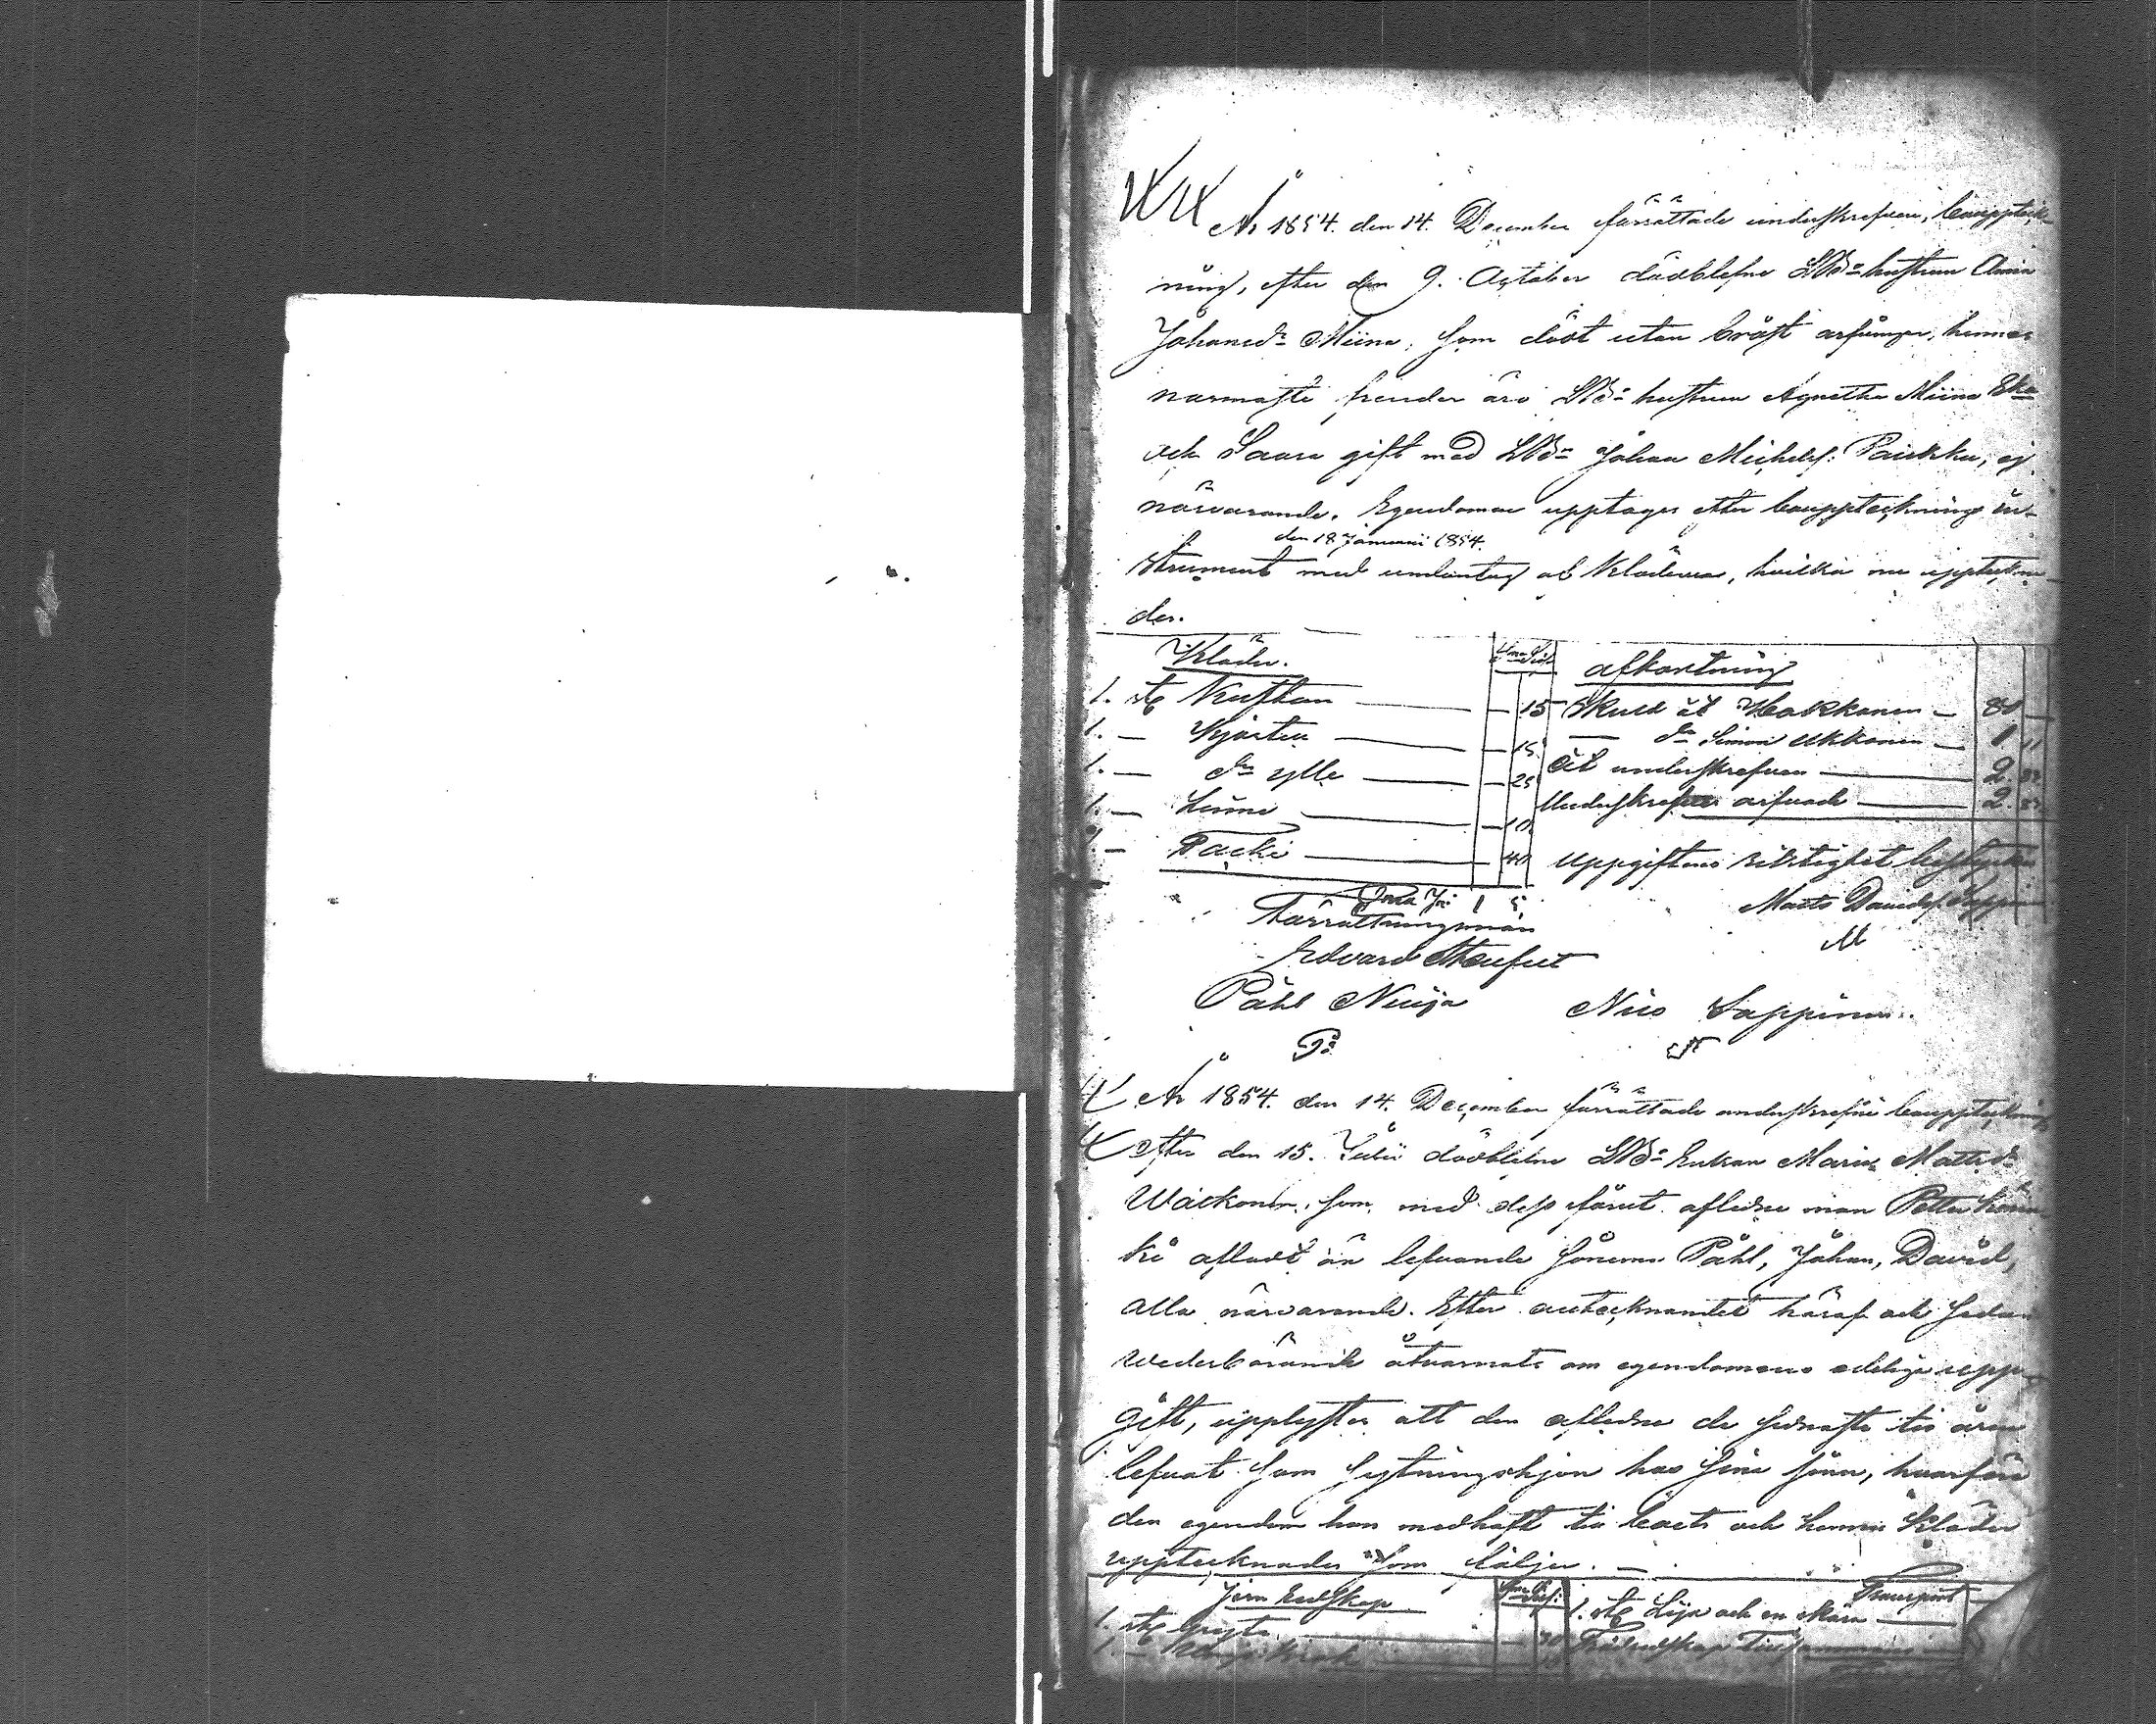 År 1854. den 14. December förrättade underskrefven, bouppteck-
ning, efter den 9. October dödblefne LBdhustrun Anna
Johansdr Miina, som dödt utan bröst arfvingar, hennes
narmaste frender äro LBd hustrun Agnetha Miina
och Saara gift med LBdn Johan Michelss: Paickku, ej
närvarande. Egendomen upptages efter bouppteckning in-
den 18 Januarii 1854.
strument med undantag af Kläderna, hvilka nu upptekna-
des.
Kläder. afkortning
1. st Kuftan — 15 Skuld åt Hakkonen —
1. — Kjortea — 15 do Simon Ukkonen — 1 11
1. — do ylle — 25 åt underskrefven — 2
1. — Linne — 10 Underskrefver arfvode — 2
1. — Packi — 40 uppgiftens riktighet
1 5
Förrättningsman Matts Davidss.
Edvard M
Påhl Niuja Nils Sappinen
P N
År 1854. den 14. December förrättade underskrefne bouppteckning
efter den 15. Julii dödblefne LBds Enkan Maria Mattsdr
Wäckonen, som med dess förut aflidne man Petter
ki afladt än lefvande sönerna Påhl, Johan, David,
alla närvarande. Efter antecknandet häraf och sedan
wederbörande åtvarnats om egendomens edelige upp-
gift, upplystes att den aflidne de sednaste tio åren
lefvat som sytningshjon hos sine söner, hvarföre
den egendom hon medhaft till boets och hennes kläder
upptecknades som följer. —
Jern Redskap Transport
1. st Gryta 1. st Lija och en skära
1. — Trädredskap Tillsammans